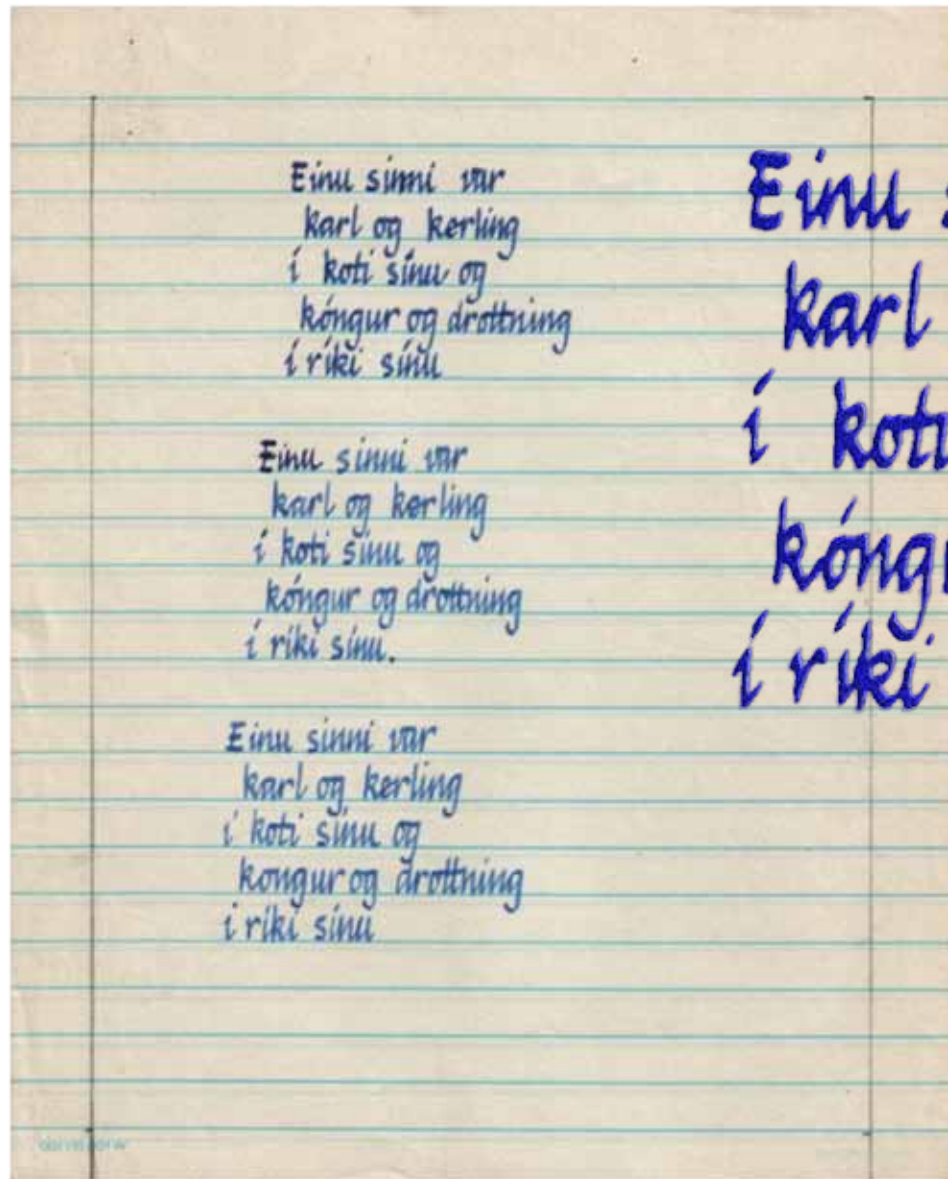 Einu sinni var
karl og kerling
í koti sínu og
kóngur og drottning
í ríki sínu
Einu sinni var
karl og kerling
í koti sínu og
kóngur og drottning
í ríki sínu.
Einu sinni var
karl og kerling
í koti sínu og
kongur og drottning
i ríki sínu
Einu s
karl
í koti
kóngu
í ríki